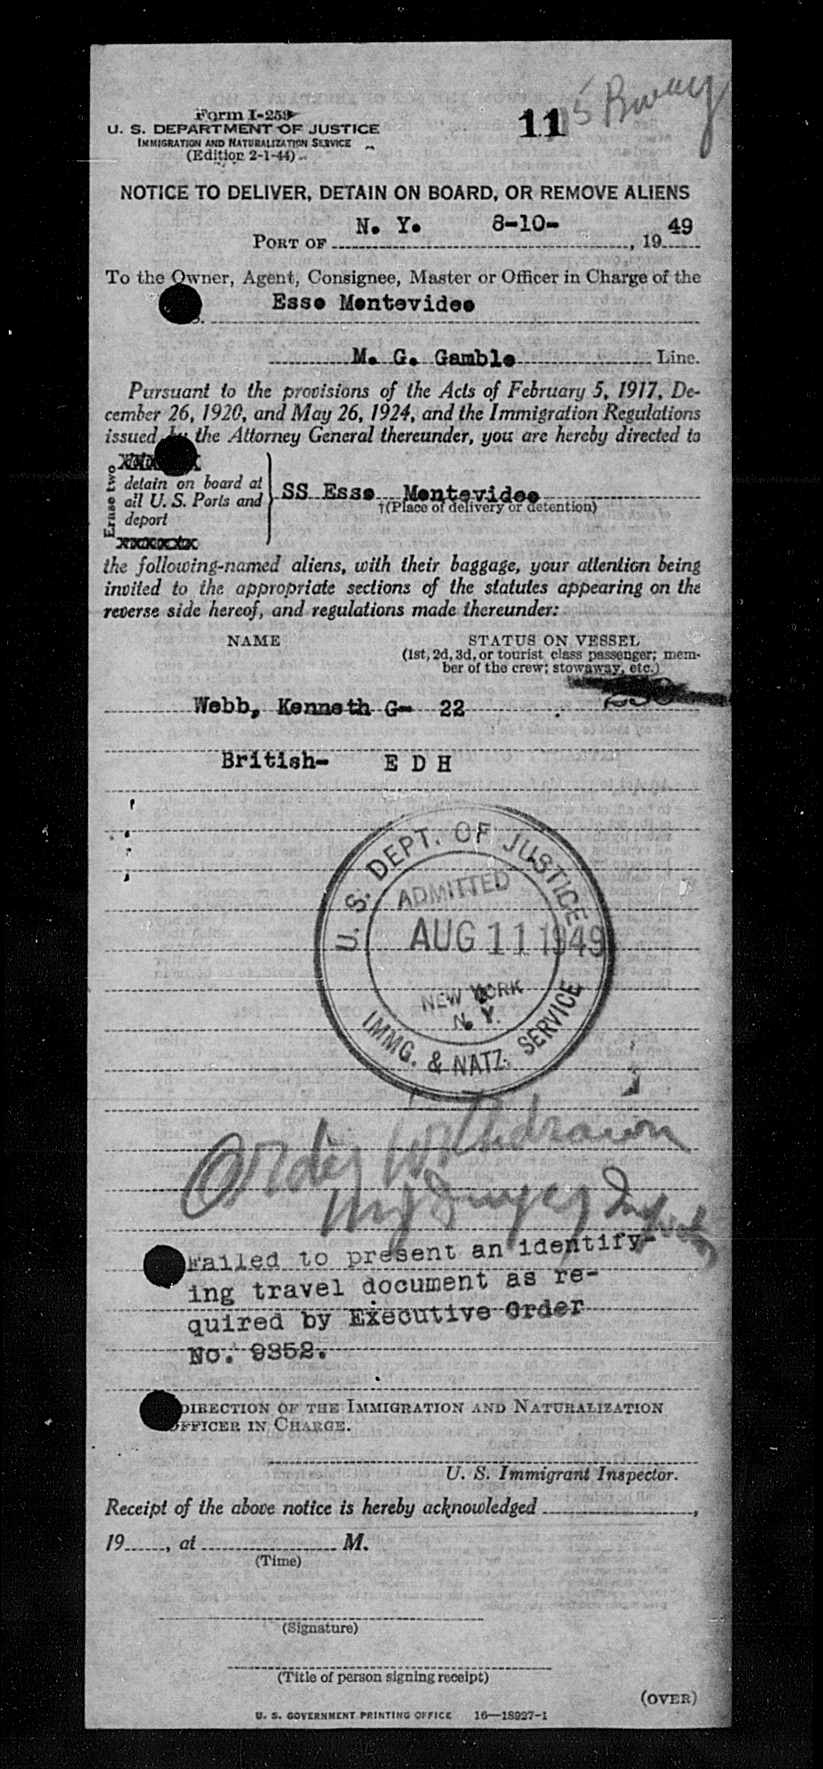 Form I-259
U. S. DEPARTMENT OF JUSTICE
IMMIGRATION AND NATURALIZATION SERVICE
(Edition 2-1-44)
11
5 Bway
NOTICE TO DELIVER, DETAIN ON BOARD, OR REMOVE ALIENS
PORT OF N. Y. 8-10-, 1949
To the Owner, Agent, Consignee, Master or Officer in Charge of the
Esso Montevideo
M. G. Gamble Line.
Pursuant to the provisions of the Acts of February 5, 1917, De-
cember 26, 1920, and May 26, 1924, and the Immigration Regulations
issued by the Attorney General thereunder, you are hereby directed to
Erase two
detain on board at
all U. S. Ports and
deport
SS Esso Montevideo
†(Place of delivery or detention)
the following-named aliens, with their baggage, your attention being
invited to the appropriate sections of the statutes appearing on the
reverse side hereof, and regulations made thereunder:
NAME STATUS ON VESSEL
(1st, 2d, 3d, or tourist class passenger; mem-
ber of the crew; stowaway, etc.)
Webb, Kenneth G- 22
British- E D H
U. S. DEPT. OF JUSTICE
ADMITTED
AUG 11 1949
NEW YORK
N. Y.
IMMG. & NATZ. SERVICE
Order Withdrawn
Failed to present an identify-
ing travel document as re-
quired by Executive Order
No. 9352.
DIRECTION OF THE IMMIGRATION AND NATURALIZATION
OFFICER IN CHARGE.
U. S. Immigrant Inspector.
Receipt of the above notice is hereby acknowledged ,
19 , at M.
(Time)
(Signature)
(Title of person signing receipt)
(OVER)
U. S. GOVERNMENT PRINTING OFFICE 16—18927-1